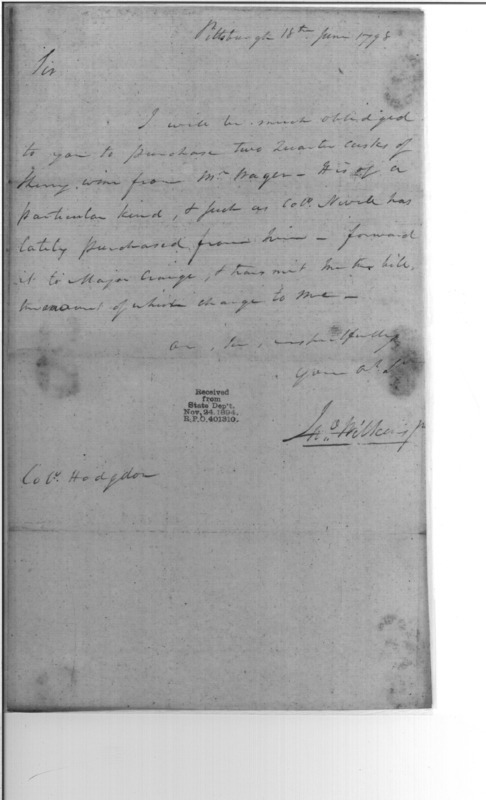 Pittsburgh 18th June 1798
Sir
I will be much oblidged
to you to purchase two Quarter casks of
Sherry wine from Mr. Wager - It is of a
particular kind, & such as Col. Nevill has
lately purchased from him - forward
it to Major Craige, & transmit me the bill,
the amount of which charge to me -
am, Sir, respectfully
your ob. St
Jno Wilkins Jr
Received
from
State Dep't.
Nov. 24, 1894.
R.P.O. 401310.
Col. Hodgdon